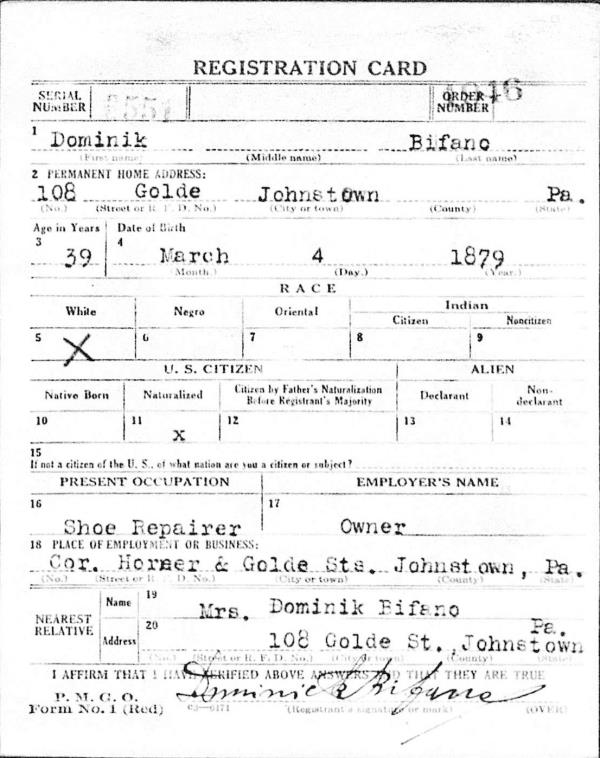 REGISTRATION CARD
SERIAL NUMBER 555 ORDER NUMBER 46
1 Dominik Bifano
(First name) (Middle name) (Last name)
2 PERMANENT HOME ADDRESS:
108 Golde Johnstown Pa.
(No.) (Street or R. F. D. No.) (City or town) (County) (State)
Age in Years Date of Birth
3 39 4 March 4 1879
(Month.) (Day.) (Year.)
RACE
White Negro Oriental Indian
Citizen Noncitizen
5 X 6 7 8 9
U. S. CITIZEN ALIEN
Native Born Naturalized Citizen by Father's Naturalization Before Registrant's Majority Declarant Non-declarant
10 11 12 13 14
X
15
If not a citizen of the U. S., of what nation are you a citizen or subject?
PRESENT OCCUPATION EMPLOYER'S NAME
16 17
Shoe Repairer Owner
18 PLACE OF EMPLOYMENT OR BUSINESS:
Cor. Horner & Golde Sts. Johnstown, Pa.
(No.) (Street or R. F. D. No.) (City or town) (County) (State)
NEAREST RELATIVE Name 19 Mrs. Dominik Bifano
Address 20 108 Golde St., Johnstown Pa.
(No.) (Street or R. F. D. No.) (City or town) (County) (State)
I AFFIRM THAT I HAVE VERIFIED ABOVE ANSWERS AND THAT THEY ARE TRUE
P. M. G. O.
Form No. 1 (Red) 03—6171 Dominick Bifano
(Registrant's signature or mark) (OVER)